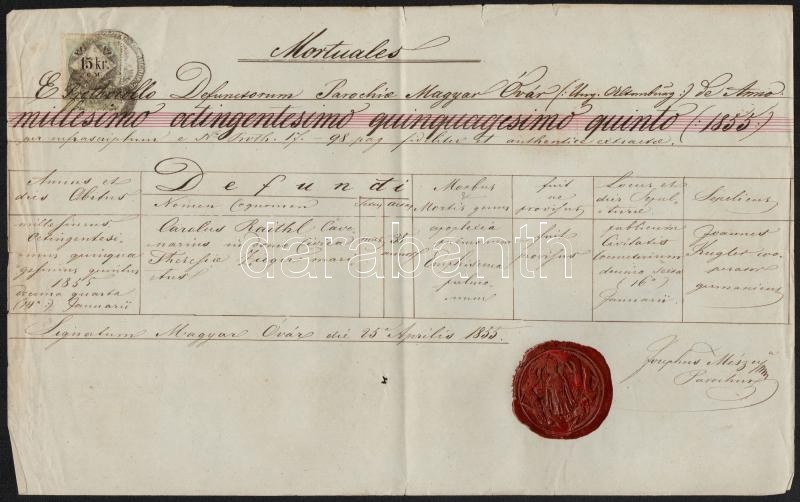 15 kr.
C. M.
Mortuales
E Prothocollo Defunctorum Parochiæ Magyar Óvár (: Ung. Altenburg :) de Anno
millesimo octingentesimo quinquagesimo quinto (: 1855 :)
per infrascriptum e Proth. 17. - 98 pag fideliter et authentice extractæ.
Annus et
dies Obitus
Defuncti
Nomen Cognomen
Morbus
Mortis genus
fuit
ne
provisus
Locus et
dies Sepul-
turæ
Sepeliens
millesimus
Octingentesi-
mus quinqua
gesimus quintus
1855
decima quarta
(14a :) Januarii
Carolus Raithl
Theresiæ
mas
37
annor
apoplexia
pulmo-
num
fuit
provisus
publicum
Civitatis
coemeterium
decima sexta
(16a)
Januarii
Joannes
Krugler coo-
perator
germanicus
Signatum Magyar Óvár die 25a Aprilis 1855.
Josephus
Parochus
darabanth